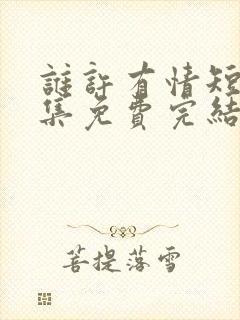 誰許有情短
集免費完結
菩提落雪